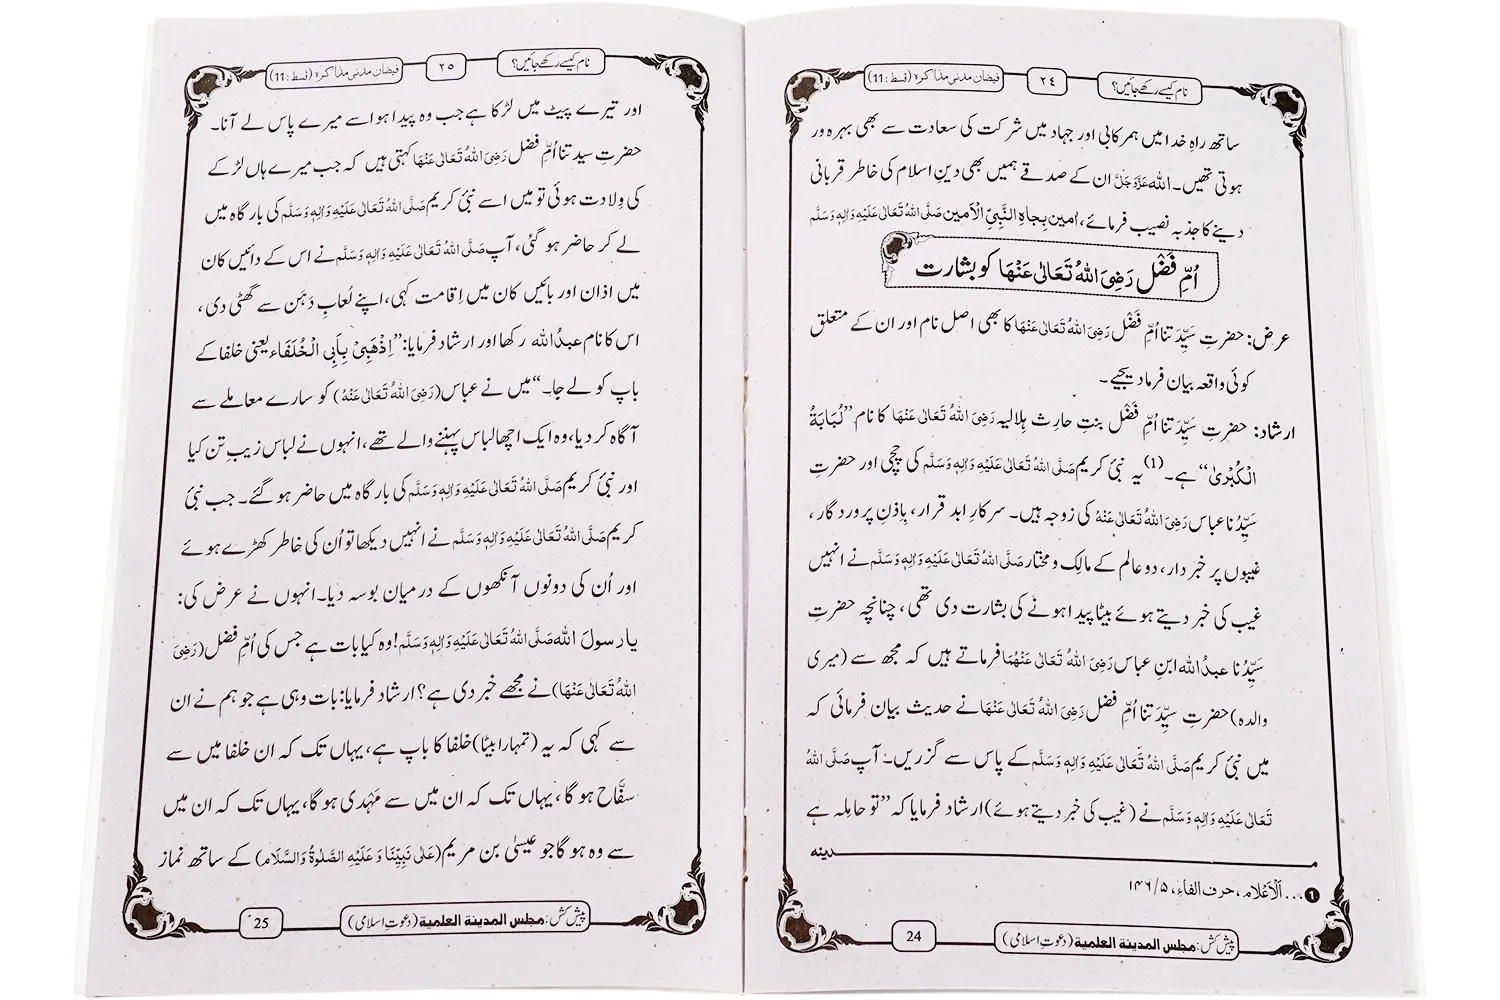 نام کیسے رکھے جائیں؟
٢٤
فیضان مدنی مذاکرہ (قسط: 11)
ساتھ راہِ خدا میں ہمرکابی اور جہاد میں شرکت کی سعادت سے بھی بہرہ ور
ہوتی تھیں۔ اللہ عَزَّوَجَلَّ ان کے صدقے ہمیں بھی دینِ اسلام کی خاطر قربانی
دینے کا جذبہ نصیب فرمائے، اٰمین بِجاہِ النَّبِیِّ الْاَمین صَلَّی اللہُ تَعَالٰی عَلَیْہِ وَاٰلِہٖ وَسَلَّم
اُمِّ فَضْل رَضِیَ اللہُ تَعَالٰی عَنْہَا کو بشارت
عرض: حضرتِ سَیِّدَتنا اُمِّ فَضْل رَضِیَ اللہُ تَعَالٰی عَنْہَا کا بھی اصل نام اور ان کے متعلق
کوئی واقعہ بیان فرما دیجیے۔
ارشاد: حضرتِ سَیِّدَتنا اُمِّ فَضْل بنتِ حارِث ہِلالیہ رَضِیَ اللہُ تَعَالٰی عَنْہَا کا نام ”لُبَابَۃُ
الْکُبْرٰی“ ہے۔(1) یہ نبیٔ کریم صَلَّی اللہُ تَعَالٰی عَلَیْہِ وَاٰلِہٖ وَسَلَّم کی چچی اور حضرتِ
سَیِّدُنا عباس رَضِیَ اللہُ تَعَالٰی عَنْہُ کی زوجہ ہیں۔ سرکارِ ابد قرار، بِاِذنِ پروردگار،
غیبوں پر خبردار، دو عالم کے مالِک و مختار صَلَّی اللہُ تَعَالٰی عَلَیْہِ وَاٰلِہٖ وَسَلَّم نے انہیں
غیب کی خبر دیتے ہوئے بیٹا پیدا ہونے کی بشارت دی تھی، چنانچہ حضرتِ
سَیِّدُنا عبدُاللہ ابنِ عباس رَضِیَ اللہُ تَعَالٰی عَنْہُمَا فرماتے ہیں کہ مجھ سے (میری
والدہ) حضرتِ سَیِّدَتنا اُمِّ فضل رَضِیَ اللہُ تَعَالٰی عَنْہَا نے حدیث بیان فرمائی کہ
میں نبیٔ کریم صَلَّی اللہُ تَعَالٰی عَلَیْہِ وَاٰلِہٖ وَسَلَّم کے پاس سے گزریں۔ آپ صَلَّی اللہُ
تَعَالٰی عَلَیْہِ وَاٰلِہٖ وَسَلَّم نے (غیب کی خبر دیتے ہوئے) ارشاد فرمایا کہ ”تو حامِلہ ہے
مدینہ
1 ... اَلْاَعْلام، حرف الفاء، ۵/۱۴۶
پیش کش: مجلس المدینۃ العلمیۃ (دعوتِ اسلامی)
24
نام کیسے رکھے جائیں؟
٢٥
فیضان مدنی مذاکرہ (قسط: 11)
اور تیرے پیٹ میں لڑکا ہے جب وہ پیدا ہو اسے میرے پاس لے آنا۔
حضرتِ سیدتنا اُمِّ فضل رَضِیَ اللہُ تَعَالٰی عَنْہَا کہتی ہیں کہ جب میرے ہاں لڑکے
کی وِلادت ہوئی تو میں اسے نبیٔ کریم صَلَّی اللہُ تَعَالٰی عَلَیْہِ وَاٰلِہٖ وَسَلَّم کی بارگاہ میں
لے کر حاضر ہو گئی، آپ صَلَّی اللہُ تَعَالٰی عَلَیْہِ وَاٰلِہٖ وَسَلَّم نے اس کے دائیں کان
میں اذان اور بائیں کان میں اِقامت کہی، اپنے لُعابِ دَہَن سے گھٹی دی،
اس کا نام عبدُاللہ رکھا اور ارشاد فرمایا: ”اِذْھَبِیْ بِاَبِی الْخُلَفَاء یعنی خلفا کے
باپ کو لے جا۔“ میں نے عباس (رَضِیَ اللہُ تَعَالٰی عَنْہُ) کو سارے معاملے سے
آگاہ کر دیا، وہ ایک اچھا لباس پہننے والے تھے، انہوں نے لباس زیبِ تن کیا
اور نبیٔ کریم صَلَّی اللہُ تَعَالٰی عَلَیْہِ وَاٰلِہٖ وَسَلَّم کی بارگاہ میں حاضر ہو گئے۔ جب نبیٔ
کریم صَلَّی اللہُ تَعَالٰی عَلَیْہِ وَاٰلِہٖ وَسَلَّم نے انہیں دیکھا تو اُن کی خاطر کھڑے ہوئے
اور اُن کی دونوں آنکھوں کے درمیان بوسہ دیا۔ انہوں نے عرض کی:
یا رسولَ اللہ صَلَّی اللہُ تَعَالٰی عَلَیْہِ وَاٰلِہٖ وَسَلَّم! وہ کیا بات ہے جس کی اُمِّ فضل (رَضِیَ
اللہُ تَعَالٰی عَنْہَا) نے مجھے خبر دی ہے؟ ارشاد فرمایا: بات وہی ہے جو ہم نے ان
سے کہی کہ یہ (تمہارا بیٹا) خلفا کا باپ ہے، یہاں تک کہ ان خلفا میں سے
سفّاح ہو گا، یہاں تک کہ ان میں سے مَہْدی ہو گا، یہاں تک کہ ان میں
سے وہ ہو گا جو عیسیٰ بن مریم (عَلٰی نَبِیِّنَا وَ عَلَیْہِ الصَّلٰوۃُ وَالسَّلَام) کے ساتھ نماز
پیش کش: مجلس المدینۃ العلمیۃ (دعوتِ اسلامی)
25